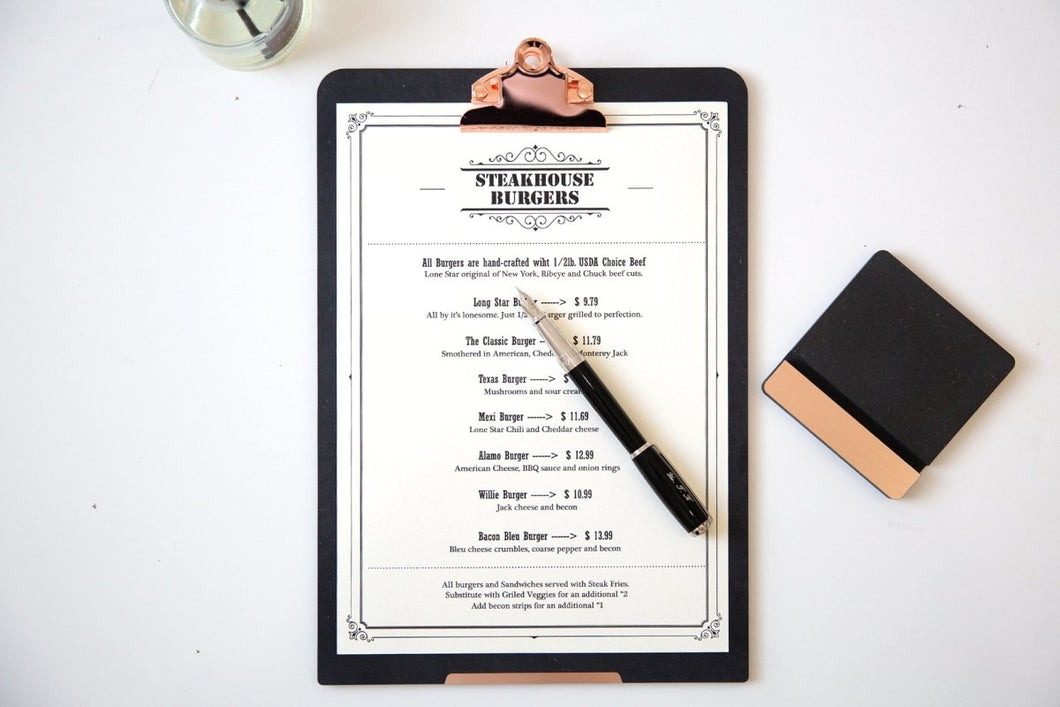 STEAKHOUSE
BURGERS
All Burgers are hand-crafted wiht 1/2lb. USDA Choice Beef
Lone Star original of New York, Ribeye and Chuck beef cuts.
Long Star ------> $ 9.79
All by it's lonesome. Just grilled to perfection.
The Classic Burger $ 11.79
Smothered in American, Monterey Jack
Texas Burger ------> $
Mushrooms and sour
Mexi Burger ------> $ 11.69
Lone Star Chili and Cheddar cheese
Alamo Burger ------> $ 12.99
American Cheese, BBQ sauce and onion rings
Willie Burger ------> $ 10.99
Jack cheese and becon
Bacon Bleu Burger ------> $ 13.99
Bleu cheese crumbles, coarse pepper and becon
All burgers and Sandwiches served with Steak Fries.
Substitute with Griled Veggies for an additional "2
Add becon strips for an additional "1